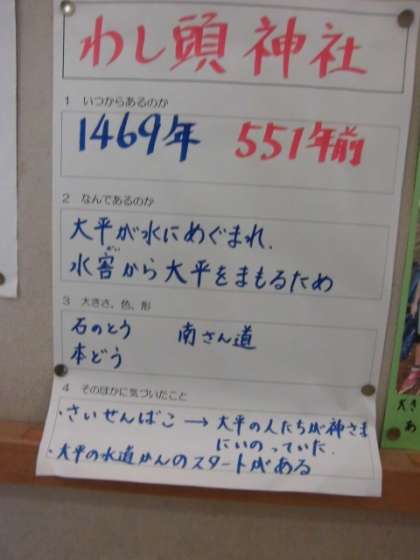 わし頭神社
1 いつからあるのか
1469年 551年前
2 なんであるのか
大平が水にめぐまれ、
水害から大平をまもるため
3 大きさ、色、形
石のとう 南さん道
本どう
4 そのほかに気づいたこと
・さいせんばこ → 大平の人たちが神さま
にいのっていた.
・大平の水道かんのスタートがある